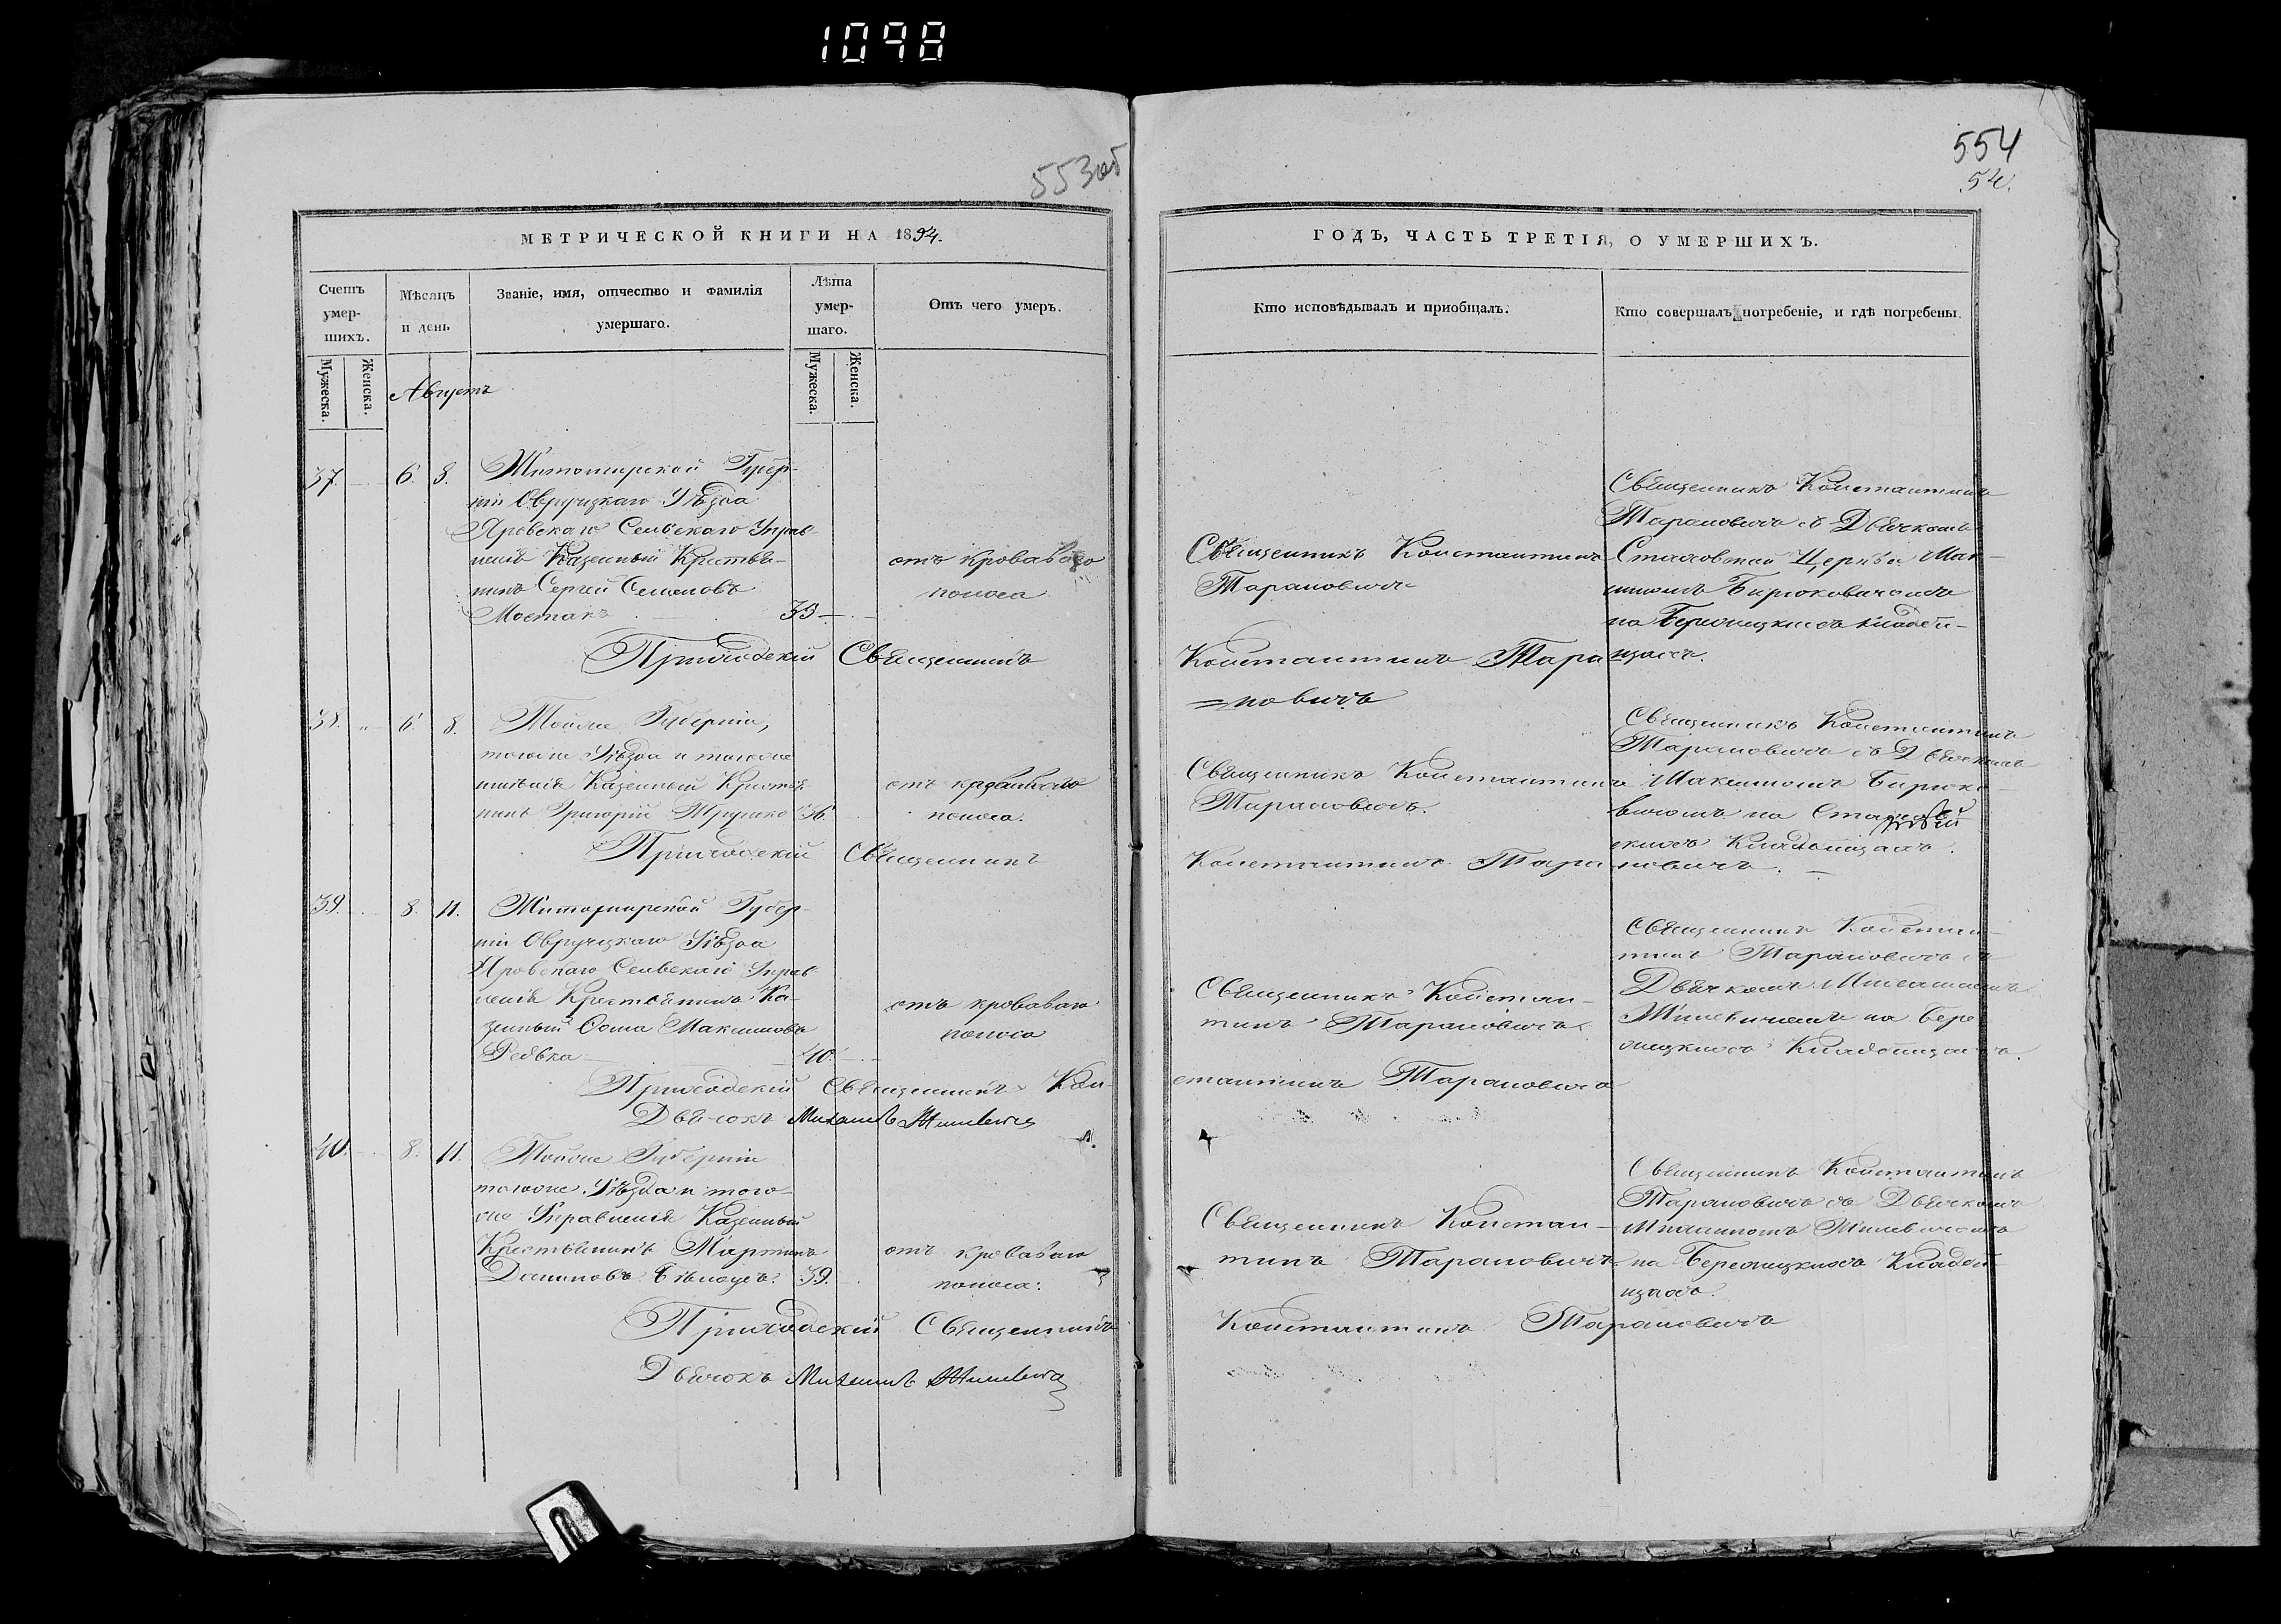 1098
553об
554
54.
МЕТРИЧЕСКОЙ КНИГИ НА 1894.
ГОДЪ, ЧАСТЬ ТРЕТІЯ, О УМЕРШИХЪ.
Счетъ умер-шихъ.
Мѣсяцъ и день
Званіе, имя, отчество и фамилія умершаго.
Лѣта умер-шаго.
Отъ чего умеръ.
Кто исповѣдывалъ и пріобщалъ.
Кто совершалъ погребеніе, и гдѣ погребены.
Мужеска.
Женска.
Мужеска.
Женска.
Августъ
37. 6. 8.
Житомирской Губер-
ніи Овруцкаго Уѣзда
Сельскаго Управ-
ленія Казенный Крестья-
нинъ Сергей Семеновъ
Мостакъ 39
отъ кроваваго
поноса
Священникъ Константинъ
Тарановичъ
Священникъ Константинъ
Тарановичъ съ Дьячкомъ
Церкви Мак-
симомъ Бирюковичемъ
на кладби-
щахъ.
Приходскій Священникъ
Константинъ Тара
=новичъ
38. 6. 8.
Тойже Губерніи,
тогоже Уѣзда и тогоже
Казенный Крестья
нинъ Григорій 36.
отъ кроваваго
поноса.
Священникъ Константинъ
Тарановичъ.
Священникъ Константинъ
Тарановичъ съ Дьячкомъ
Максимомъ Бирюко
вичомъ на
скихъ Кладбищахъ.
Приходскій Священникъ
Константинъ Тарановичъ.
39. 8. 11.
Житомирской Губер-
ніи Овруцкаго Уѣзда
Сельскаго Управ-
ленія Крестьянинъ Ка-
зенный Максимовъ
Ревка 40.
отъ кроваваго
поноса
Священникъ Констан-
тинъ Тарановичъ.
Священникъ Констан-
тинъ Тарановичъ съ
Дьячкомъ
на
Кладбищахъ.
Приходскій Священникъ Кон-
стантинъ Тарановичъ
Дьячокъ Михаилъ
40. 8. 11.
Тойже Губерніи
тогоже Уѣзда и того-
же Управленія Казенный
Крестьянинъ Мартинъ
39.
отъ кроваваго
поноса.
Священникъ Констан-
тинъ Тарановичъ
Священникъ Константинъ
Тарановичъ съ Дьячкомъ
на Кладби
щахъ.
Приходскій Священникъ
Константинъ Тарановичъ
Дьячокъ Михаилъ